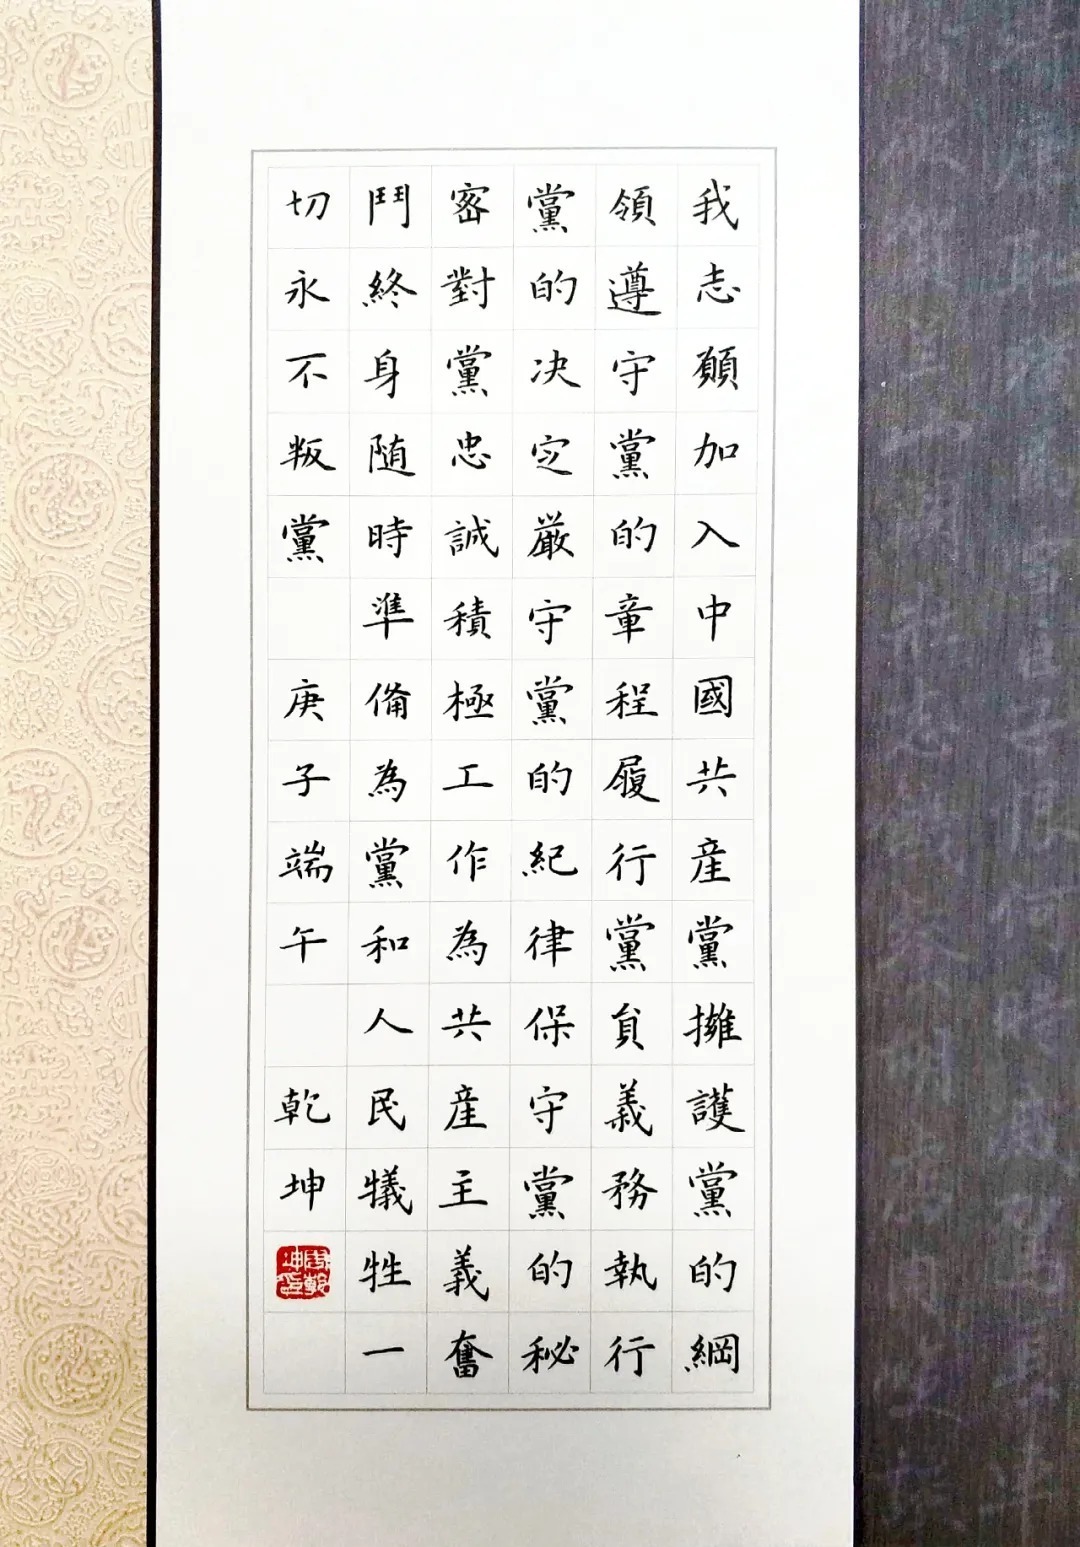 我志願加入中國共産黨擁護黨的綱
領遵守黨的章程履行黨員義務執行
黨的决定嚴守黨的紀律保守黨的秘
密對黨忠誠積極工作為共産主義奮
鬥終身随時準備為黨和人民犧牲一
切永不叛黨 庚子端午 乾坤